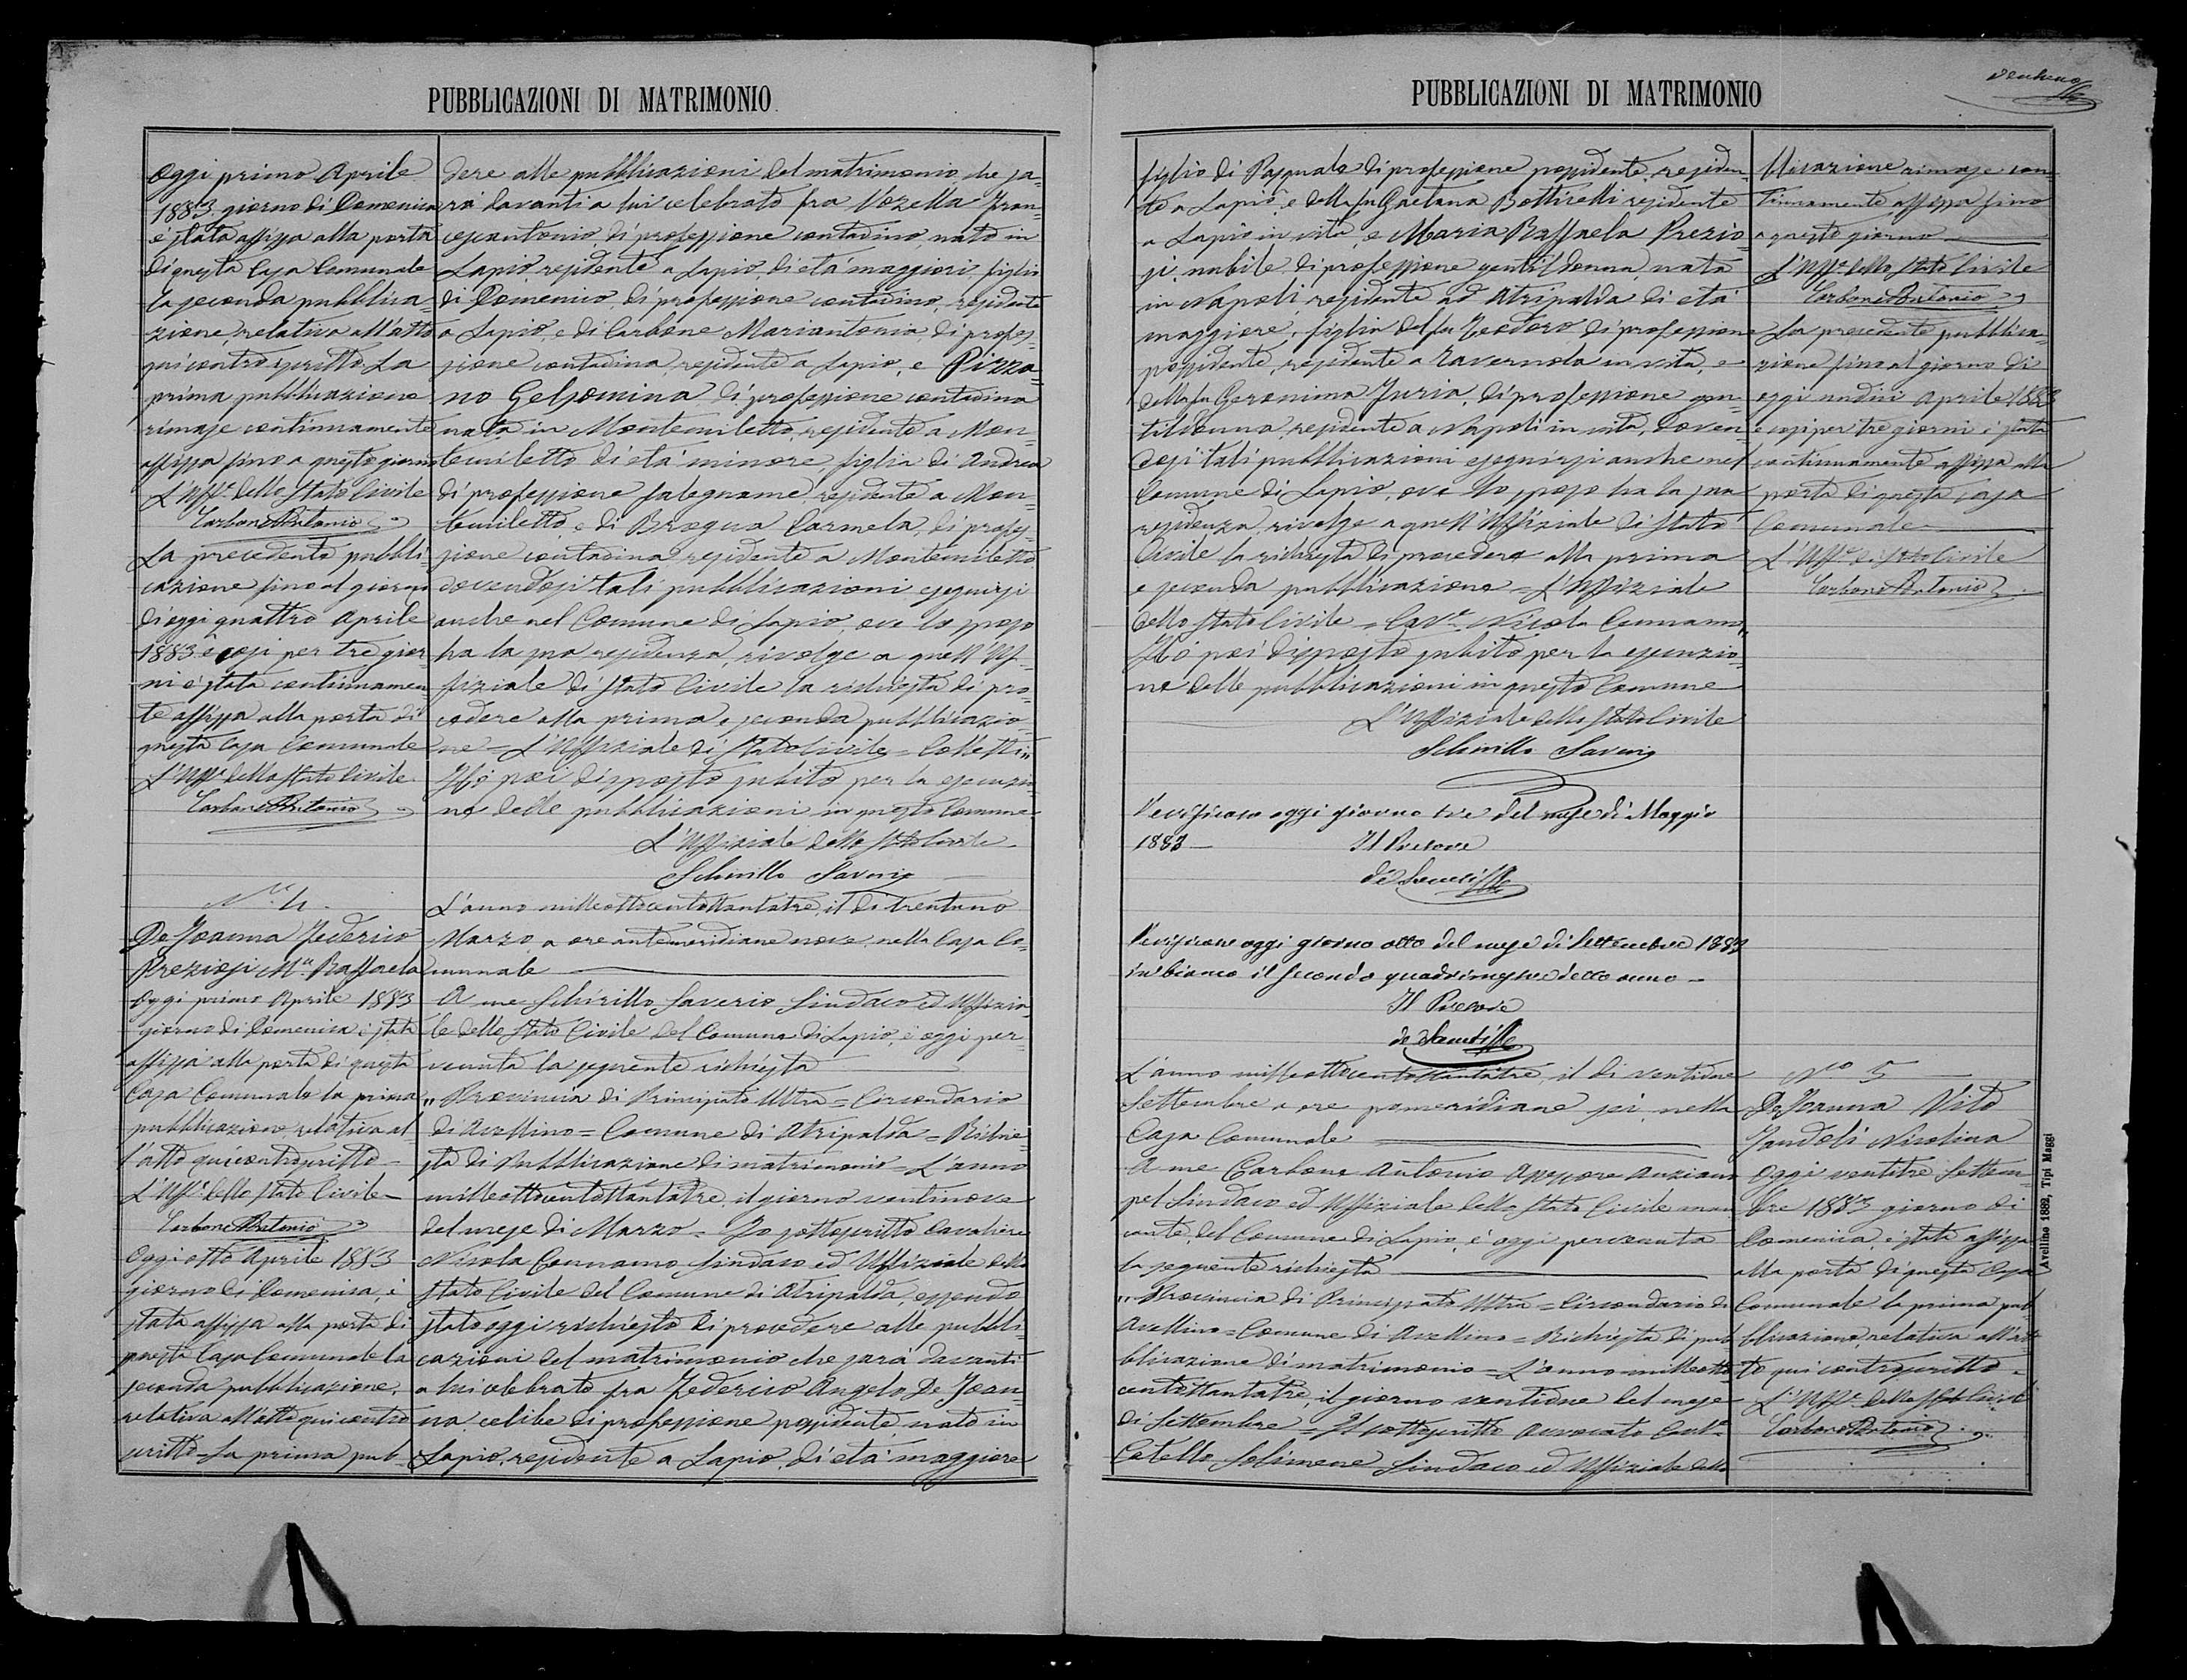 PUBBLICAZIONI DI MATRIMONIO
Oggi primo Aprile
1883 giorno di Domenica
è stata affissa alla porta
di questa Casa Comunale
la seconda pubblica-
zione, relativa all'atto
qui contro scritto La
prima pubblicazione
rimase continuamente
affissa fino a questo giorno
L'Uff.e dello Stato Civile
Carbone Antonio
La precedente pubbli-
cazione fino al giorno
di oggi quattro Aprile
1883 e così per tre gior
ni è stata continuamen
te affissa alla porta di
questa Casa Comunale
L'Uff.e dello Stato Civile
Carbone Antonio
N.o 4.
De Joanna Federico
Preziosi M.a Raffaela
Oggi primo Aprile 1883
giorno di Domenica è stata
affissa alla porta di questa
Casa Comunale la prima
pubblicazione relativa al-
l'atto qui controscritto
L'Uff.e dello Stato Civile
Carbone Antonio
Oggi otto Aprile 1883
giorno di Domenica, è
stata affissa alla porta di
questa Casa Comunale la
seconda pubblicazione,
relativa all'atto qui contro
scritto La prima pub-
dere alle pubblicazioni del matrimonio che sa-
rà davanti a lui celebrato fra Vozella Fran-
cescantonio, di professione contadino, nato in
Lapio, residente a Lapio, di età maggiori figlio
di Domenico, di professione contadino, residente
a Lapio, e di Carbone Mariantonia, di profes-
sione contadina, residente a Lapio, e Pizza-
no Gelsomina di professione contadina
nata in Montemiletto, residente a Mon-
temiletto di età minore, figlia di Andrea
di professione falegname, residente a Mon-
temiletto, e di Bregua Carmela, di profes-
sione contadina residente a Montemiletto
dovendosi tali pubblicazioni eseguirsi
anche nel Comune di Lapio, ove lo sposo
ha la sua residenza, rivolge a quell'Uf-
fiziale di Stato Civile la richiesta di pro-
cedere alla prima e seconda pubblicazio-
ne = L'Uffiziale di Stato Civile = Colletti"
Ho poi disposto subito per la esecuzio
ne delle pubblicazioni in questo Comune
L'Uffiziale dello Stato Civile
Schirillo Saverio
L'anno milleottocentottantatre, il dì trentuno
Marzo a ore antemeridiane nove nella Casa Co-
munale
A me Schirillo Saverio Sindaco ed Uffizia-
le dello Stato Civile del Comune di Lapio, è oggi per-
venuta la seguente richiesta
"Provincia di Principato Ultra = Circondario
di Avellino = Comune di Atripalda = Richie-
sta di Pubblicazione di matrimonio = L'anno
milleottocentottantatre, il giorno ventinove
del mese di Marzo = Io sottoscritto Cavaliere
Nicola Cennamo Sindaco ed Uffiziale dello
Stato Civile del Comune di Atripalda, essendo
stato oggi richiesto di procedere alle pubbli-
cazioni del matrimonio che sarà davanti
a lui celebrato fra Federico Angelo De Joan-
na, celibe di professione possidente, nato in
Lapio, residente a Lapio, di età maggiore
PUBBLICAZIONI DI MATRIMONIO
figlio di Pasquale di professione possidente, residen-
te a Lapio, e della fu Gaetana Bottirelli residente
a Lapio in vita, e Maria Raffaela Prezio-
si, nubile, di professione gentildonna, nata
in Napoli, residente ad Atripalda di età
maggiore, figlia del fu Teodoro di professione
possidente, residente a Tavernola in vita, e
della fu Geronima Juria, di professione gen-
tildonna, residente a Napoli in vita, doven-
dosi tali pubblicazioni eseguirsi anche nel
Comune di Lapio, ove lo sposo ha la sua
residenza, rivolge a quell'Uffiziale di Stato
Civile la richiesta di procedere alla prima
e seconda pubblicazione = L'Uffiziale
dello Stato Civile = Cav.e Nicola Cennamo"
Ho poi disposto subito per la esecuzio-
ne delle pubblicazioni in questo Comune
L'Uffiziale dello Stato Civile
Schirillo Saverio
Verificato oggi giorno tre del mese di Maggio
1883
Il Pretore
de Sanctis
Verificato oggi giorno otto del mese di Settembre 1883
in bianco il secondo quadrimestre detto anno
Il Pretore
de Sanctis
L'anno milleottocentottantatre, il dì ventidue
Settembre a ore pomeridiane sei nella
Casa Comunale
A me Carbone Antonio Assessore Anziano
pel Sindaco ed Uffiziale dello Stato Civile man-
cante, del Comune di Lapio, è oggi pervenuta
la seguente richiesta
"Provincia di Principato Ultra = Circondario di
Avellino = Comune di Avellino = Richiesta di pub
blicazione di matrimonio = L'anno milleotto-
centottantatre, il giorno ventidue del mese
di Settembre = Il sottoscritto Avvocato Cav.e
Catello Solimene Sindaco ed Uffiziale dello
blicazione rimase con-
tinuamente affissa fino
a questo giorno
L'Uff.e dello Stato Civile
Carbone Antonio
La precedente pubblica-
zione fino al giorno di
oggi undici Aprile 1883
e così per tre giorni è stata
continuamente affissa alla
porta di questa Casa
Comunale
L'Uff.e di Stato Civile
Carbone Antonio
N.o 5
De Joanna Vito
Jandoli Nicolina
Oggi ventitre Settem-
bre 1883 giorno di
Domenica, è stata affissa
alla porta di questa Casa
Comunale la prima pub-
blicazione, relativa all'at-
to qui controscritto
L'Uff.e dello Stato Civile
Carbone Antonio
Avellino 1882, Tipi Maggi